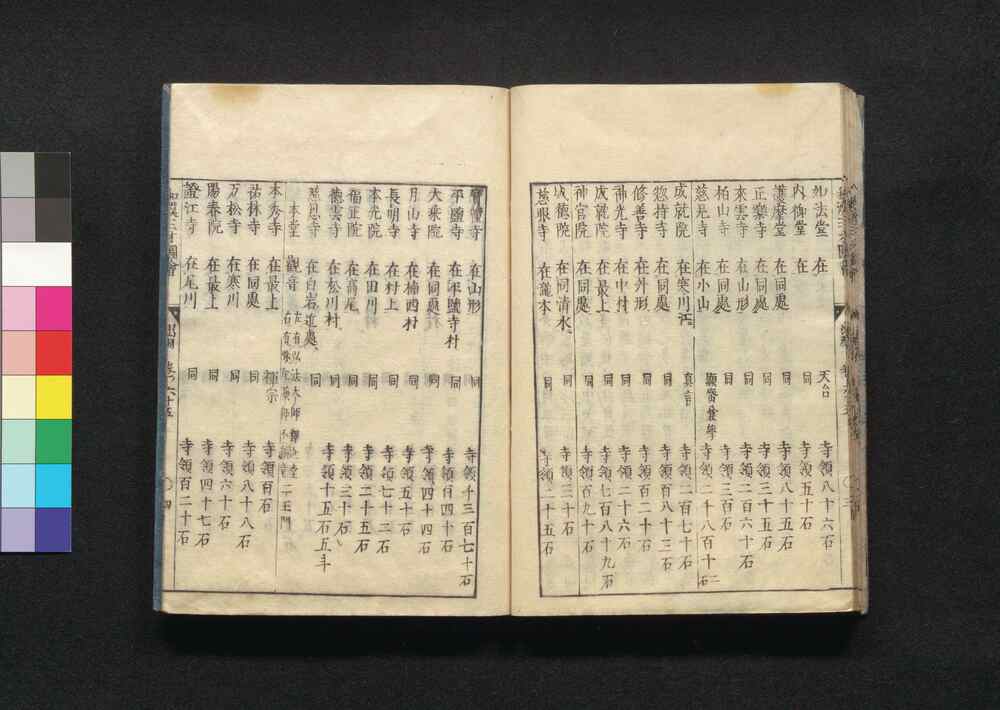 如法堂 在 天台 寺領八十六石
内御堂 在 同 寺領五十石
護摩堂 在同處 同 寺領八十五石
正樂寺 在同處 同 寺領三十五石
來雲寺 在山形 同 寺領二百六十石
柏山寺 在同處 同 寺領三百石
慈光寺 在小山 寺領二千八百十二石
成就院 在寒川江 真言 寺領二百七十石
惣持寺 在同處 同 寺領百八十三石
修善寺 在外形 同 寺領百二十石
神光寺 在中村 同 寺領二十六石
成就院 在最上 同 寺領七百八十九石
神宮院 在同處 同 寺領百九十石
成德院 在同清水 同 寺領三十石
慈眼寺 在瀧本 同 寺領二十五石
寶幢寺 在山形 同 寺領千三百七十石
平鹽寺 在平鹽寺村 同 寺領百四十石
大乘院 在同處 同 寺領四十四石
月山寺 在楯西村 同 寺領五十石
長明寺 在村上 同 寺領七十二石
本光院 在田川 同 寺領二十五石
福正院 在高尾 同 寺領三十石
德雲寺 在松川村 同 寺領十五石五斗
慈恩寺 在白岩近處 同
本堂 觀音 二王門
本秀寺 在最上 禪宗 寺領百石
祐林寺 在同處 同 寺領八十八石
万松寺 在寒川 同 寺領六十石
陽春院 在最上 同 寺領四十七石
證江寺 在尾川 同 寺領百二十石
和漢三才圖會 出羽 卷之六十五 四